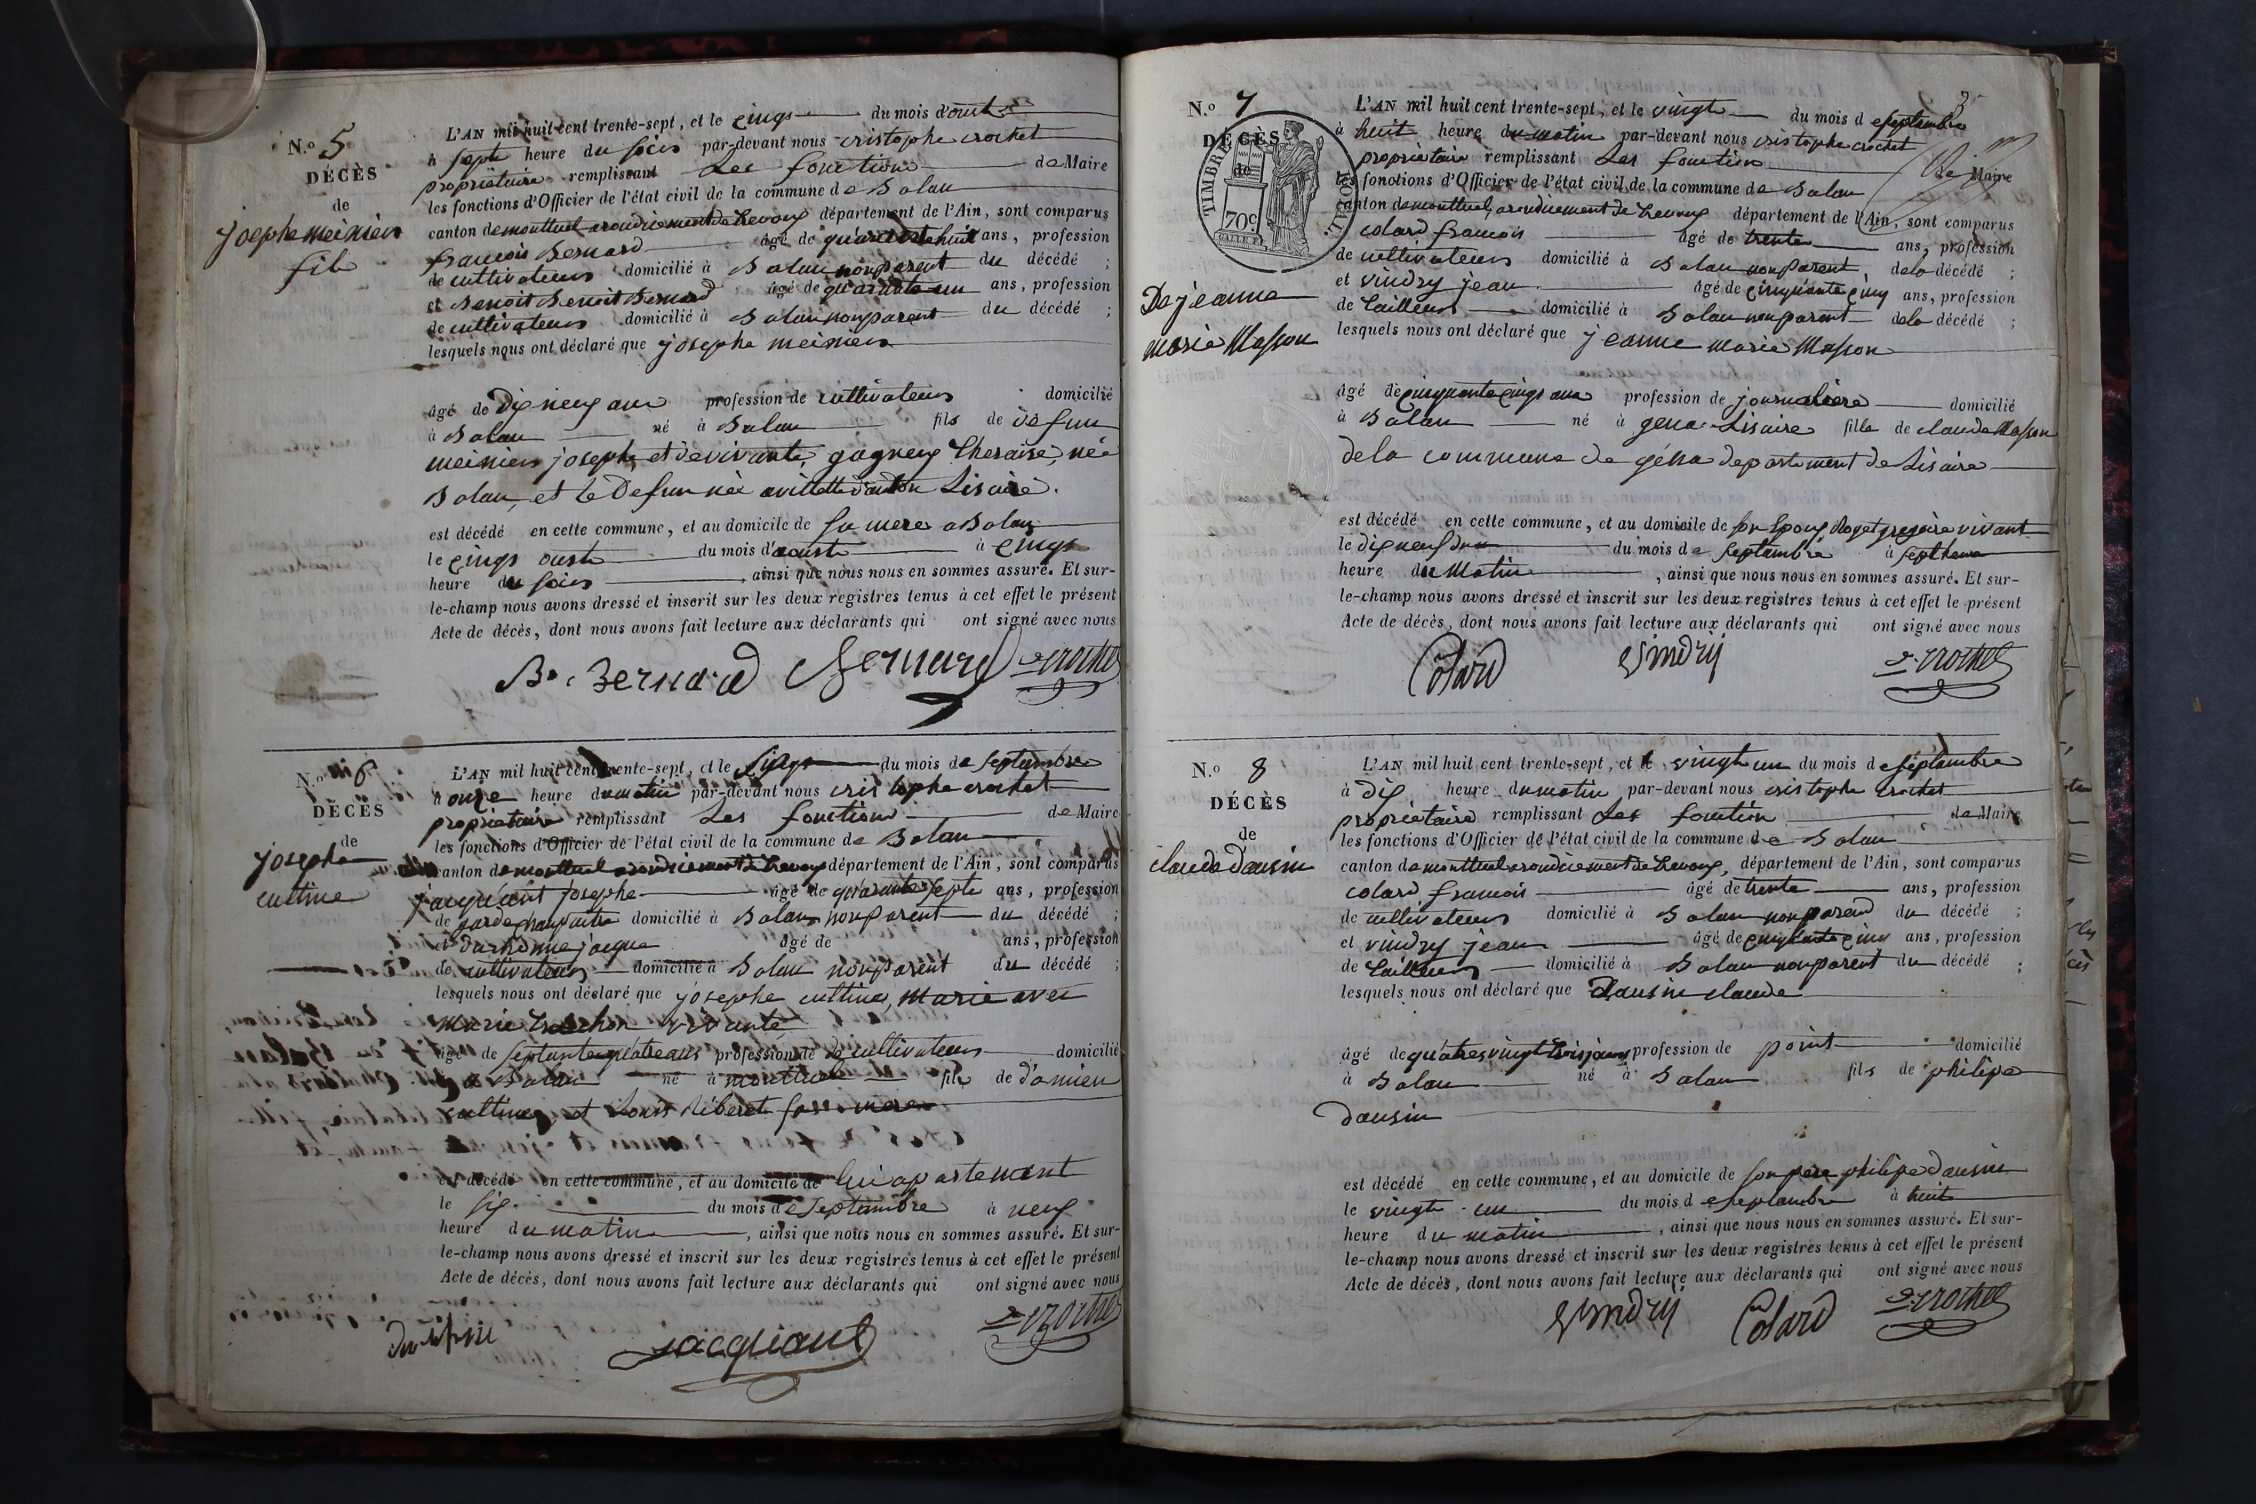 N.o 5
DÉCÈS
de
josephe meinier
fils
L'AN mil huit cent trente-sept, et le cinqs du mois d'oust
à septe heure du soire par-devant nous cristophe crochet
propriétaire remplissant Les fonctions de Maire
les fonctions d'Officier de l'état civil de la commune de Balan
canton de montluel département de l'Ain, sont comparus
francois Bernard âgé de quarante huit ans, profession
de cultivateur domicilié à Balan non parent du décédé ;
et Benoit Benoit Bernard âgé de quarante un ans, profession
de cultivateur domicilié à Balan non parent du décédé ;
lesquels nous ont déclaré que josephe meinier
âgé de dix neuf ans profession de cultivateur domicilié
à Balan né à Balan fils de défun
meinier josephe et de vivante gagneux Theraise, née
Balan, et le Defun née a villette d'anton Lisaire.
est décédé en cette commune, et au domicile de sa mere a Balan
le cinqs oust du mois d'aoust à cinqs
heure du soire, ainsi que nous nous en sommes assuré. Et sur-
le-champ nous avons dressé et inscrit sur les deux registres tenus à cet effet le présent
Acte de décès, dont nous avons fait lecture aux déclarants qui ont signé avec nous
B. Bernard Bernard crochet
N.o 6
DÉCÈS
de
josephe
cultine
L'AN mil huit cent trente-sept, et le du mois de septembre
à onze heure du matin par-devant nous cristophe crochet
propriétaire remplissant Les fonctions de Maire
les fonctions d'Officier de l'état civil de la commune de Balan
canton de montluel département de l'Ain, sont comparus
jacquiant josephe âgé de quarante septe ans, profession
de garde champaitre domicilié à Balan non parent du décédé ;
et jacque âgé de ans, profession
de cultivateur domicilié à Balan non parent du décédé ;
lesquels nous ont déclaré que josephe cultine, marie avec
marie vivante
âgé de septante quatre ans profession de de cultivateur domicilié
à Balan né à montluel fils de d'amien
cultine et Louis Riberet sa mere
est décédé en cette commune, et au domicile de lui apartement
le six du mois de septembre à neuf
heure du matin, ainsi que nous nous en sommes assuré. Et sur-
le-champ nous avons dressé et inscrit sur les deux registres tenus à cet effet le présent
Acte de décès, dont nous avons fait lecture aux déclarants qui ont signé avec nous
jacquiant crochet
N.o 7
DÉCÈS
de
TIMBRE ROYAL
70c
De jeanne
marie Masson
L'AN mil huit cent trente-sept, et le vingt du mois de septembre
à huit heure du matin par-devant nous cristophe crochet
propriétaire remplissant Les fonction de Maire
les fonctions d'Officier de l'état civil de la commune de Balan
canton de montluel, département de l'Ain, sont comparus
colard francois âgé de trente ans, profession
de cultivateur domicilié à Balan non parent de la décédé ;
et vindry jean âgé de cinquante cinq ans, profession
de tailleur domicilié à Balan non parent de la décédé ;
lesquels nous ont déclaré que jeanne marie Masson
âgé de cinquante cinqs ans profession de journaliere domicilié
à Balan né à gena Lisaire fille de claude Masson
de la commune de géna departement de Lisaire
est décédé en cette commune, et au domicile de son Epoux Roget gregoire vivant
le dix neuf du du mois de septembre à sept heure
heure du Matin, ainsi que nous nous en sommes assuré. Et sur-
le-champ nous avons dressé et inscrit sur les deux registres tenus à cet effet le présent
Acte de décès, dont nous avons fait lecture aux déclarants qui ont signé avec nous
Colard Vindrij crochet
N.o 8
DÉCÈS
de
claude dausin
L'AN mil huit cent trente-sept, et le vingt un du mois de septembre
à dix heure du matin par-devant nous cristophe crochet
propriétaire remplissant Les fonction de Maire
les fonctions d'Officier de l'état civil de la commune de Balan
canton de montluel, département de l'Ain, sont comparus
colard francois âgé de trente ans, profession
de cultivateur domicilié à Balan non parend du décédé ;
et vindry jean âgé de cinquante cinq ans, profession
de tailleur domicilié à Balan non parent du décédé ;
lesquels nous ont déclaré que dausin claude
âgé de quatre vingt trois jours profession de point domicilié
à Balan né à Balan fils de philipe
dausin
est décédé en cette commune, et au domicile de son père philipe dausin
le vingt un du mois de septembre à huit
heure du matin, ainsi que nous nous en sommes assuré. Et sur-
le-champ nous avons dressé et inscrit sur les deux registres tenus à cet effet le présent
Acte de décès, dont nous avons fait lecture aux déclarants qui ont signé avec nous
Vindrij Colard crochet